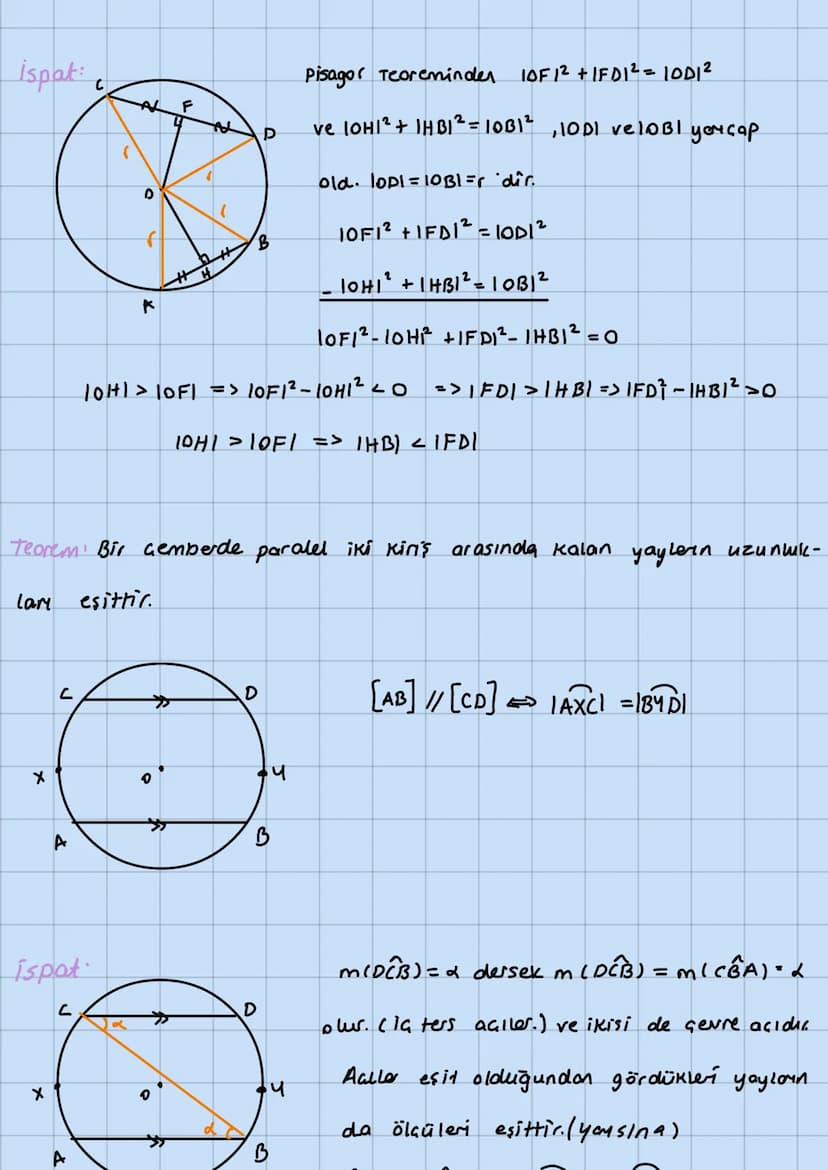 İspat:
Pisagor Teoreminden |OF|² + |FD|² = |OD|²
ve |OH|² + |HB|² = |OB|² , |OD| ve |OB| yarıçap
old. |OD| = |OB| = r 'dir.
|OF|² + |FD|² = |OD|²
- |OH|² + |HB|² = |OB|²
|OF|² - |OH|² + |FD|² - |HB|² = 0
C F D r r r r O B H A
|OH| > |OF| => |OF|² - |OH|² < 0 => |FD| > |HB| => |FD|² - |HB|² > 0
|OH| > |OF| => |HB| < |FD|
Teorem: Bir çemberde paralel iki kiriş arasında kalan yayların uzunluk-
ları eşittir.
C D
[AB] // [CD] ⇔ |AXC| = |BYD|
X O Y
A B
İspat:
m(DĈB) = α dersek m(DĈB) = m(CB̂A) = α
olur. (iç ters açılar.) ve ikisi de çevre açıdır.
Açılar eşit olduğundan gördükleri yayların
da ölçüleri eşittir.
C α D
X O Y
α
A B